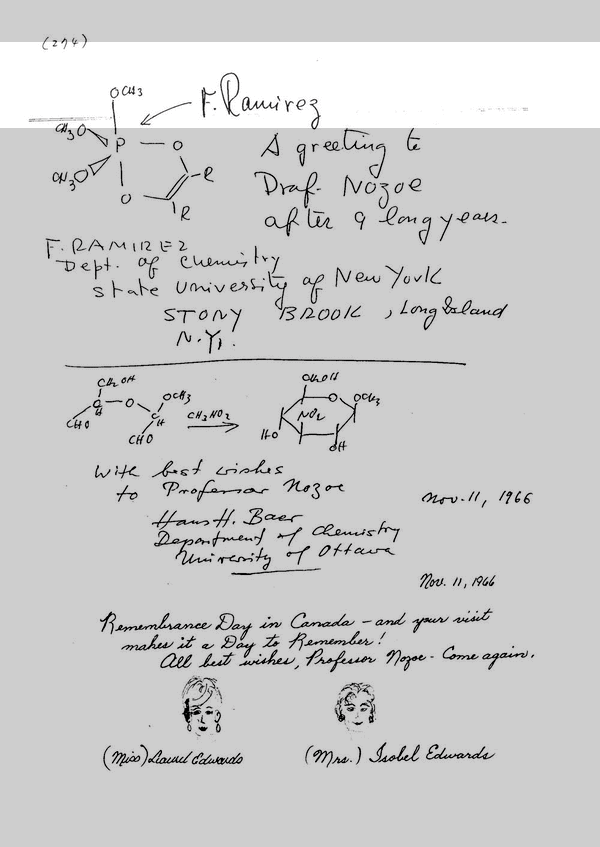 (274)
OCH3
F. Ramirez
CH3O
P
O
CH3O
R
O
R
A greeting to
Prof. Nozoe
after 9 long years.
F. RAMIREZ
Dept. of Chemistry
State University of New York
STONY BROOK, Long Island
N.Y.
CH2OH
C
H
O
OCH3
C
H
CHO
CHO
CH3NO2
CH2OH
O
OCH3
NO2
HO
OH
With best wishes
to Professor Nozoe
Nov. 11, 1966
Hans H. Baer
Department of Chemistry
University of Ottawa
Nov. 11, 1966
Remembrance Day in Canada - and your visit
makes it a Day to Remember!
All best wishes, Professor Nozoe - Come again.
(Miss) Laurel Edwards
(Mrs.) Isobel Edwards